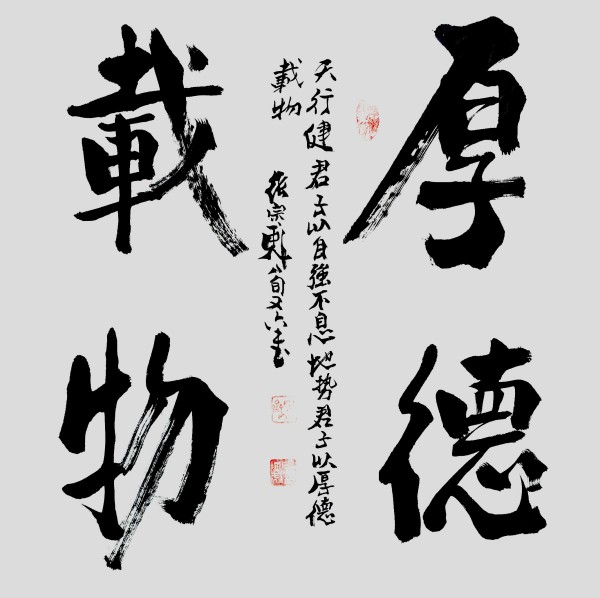 厚德
天行健君子以自強不息地势君子以厚德
載物 宗八旬又六書
載物